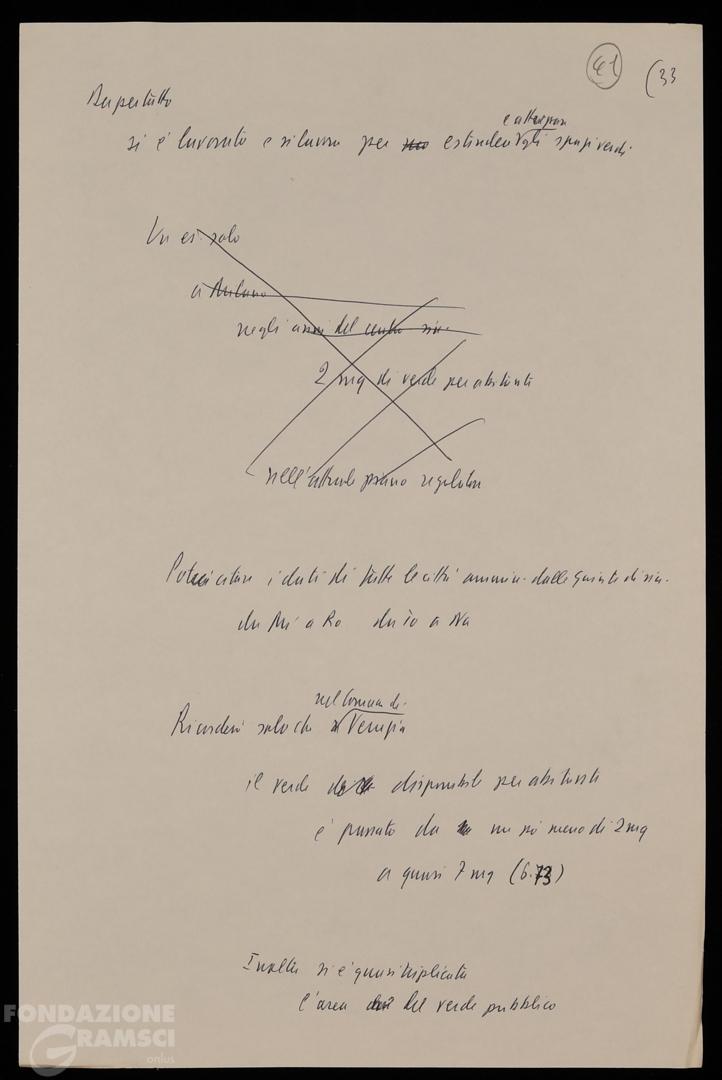 41 (33
Dappertutto
e attrezzare
si è lavorato e si lavora per estendere gli spazi verdi.
Un es. solo
a Milano
negli anni del centro sin.
2 mq di verde per abitante
nell'attuale piano regolatore
Potrei citare i dati di tutte le città ammin. dalle Giunte di sin.
da Mi a Ro da To a Na
nel Comune di
Ricorderò solo che Venezia
il verde disponibile per abitante
è passato da un po' meno di 2 mq
a quasi 7 mq (6.73)
Inoltre si è quasi triplicata
l'area del verde pubblico
FONDAZIONE
GRAMSCI
onlus